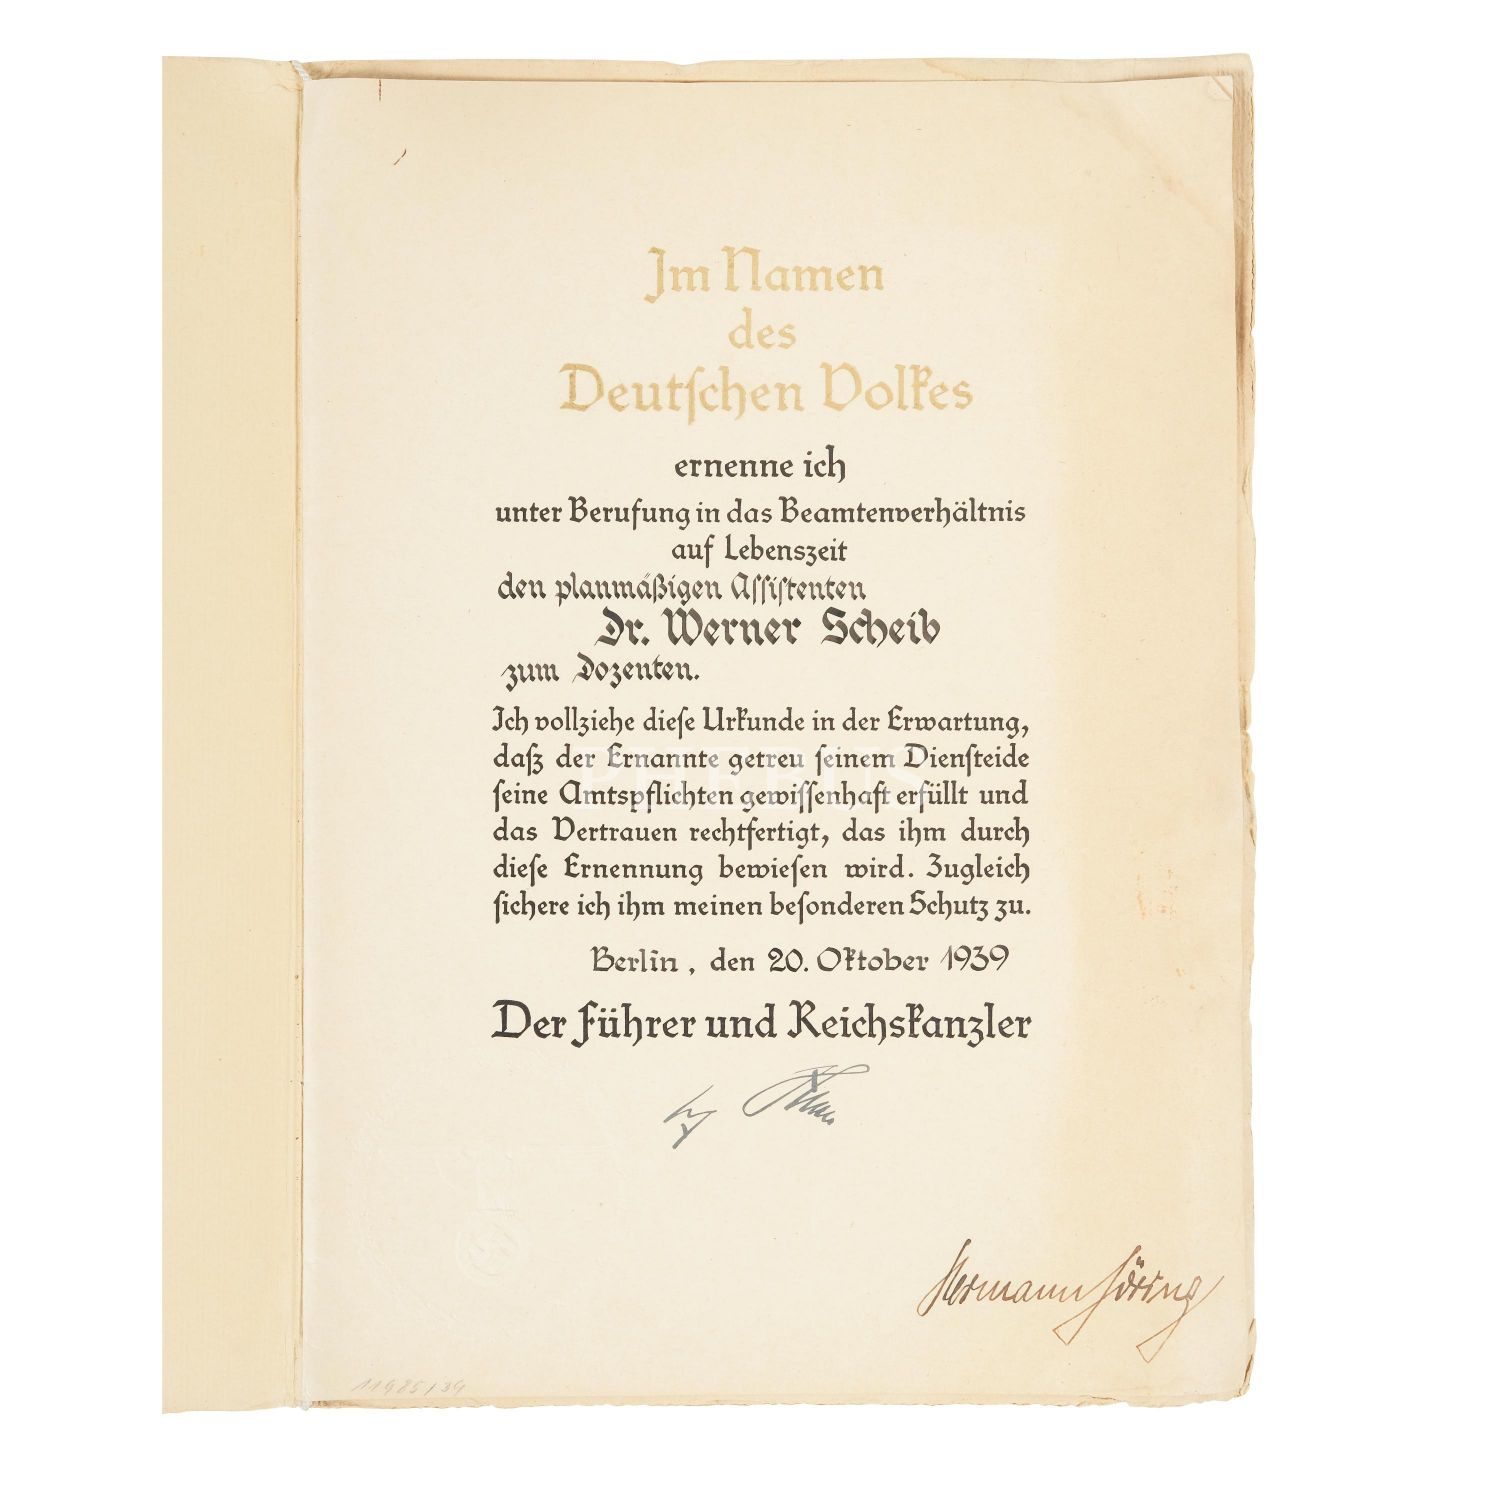 Im Namen
des
Deutschen Volkes
ernenne ich
unter Berufung in das Beamtenverhältnis
auf Lebenszeit
den planmäßigen Assistenten
Dr. Werner Scheib
zum Dozenten.
Ich vollziehe diese Urkunde in der Erwartung,
daß der Ernannte getreu seinem Diensteide
seine Amtspflichten gewissenhaft erfüllt und
das Vertrauen rechtfertigt, das ihm durch
diese Ernennung bewiesen wird. Zugleich
sichere ich ihm meinen besonderen Schutz zu.
PHEBUS
Berlin, den 20. Oktober 1939
Der Führer und Reichskanzler
Hermann Göring
11985/39